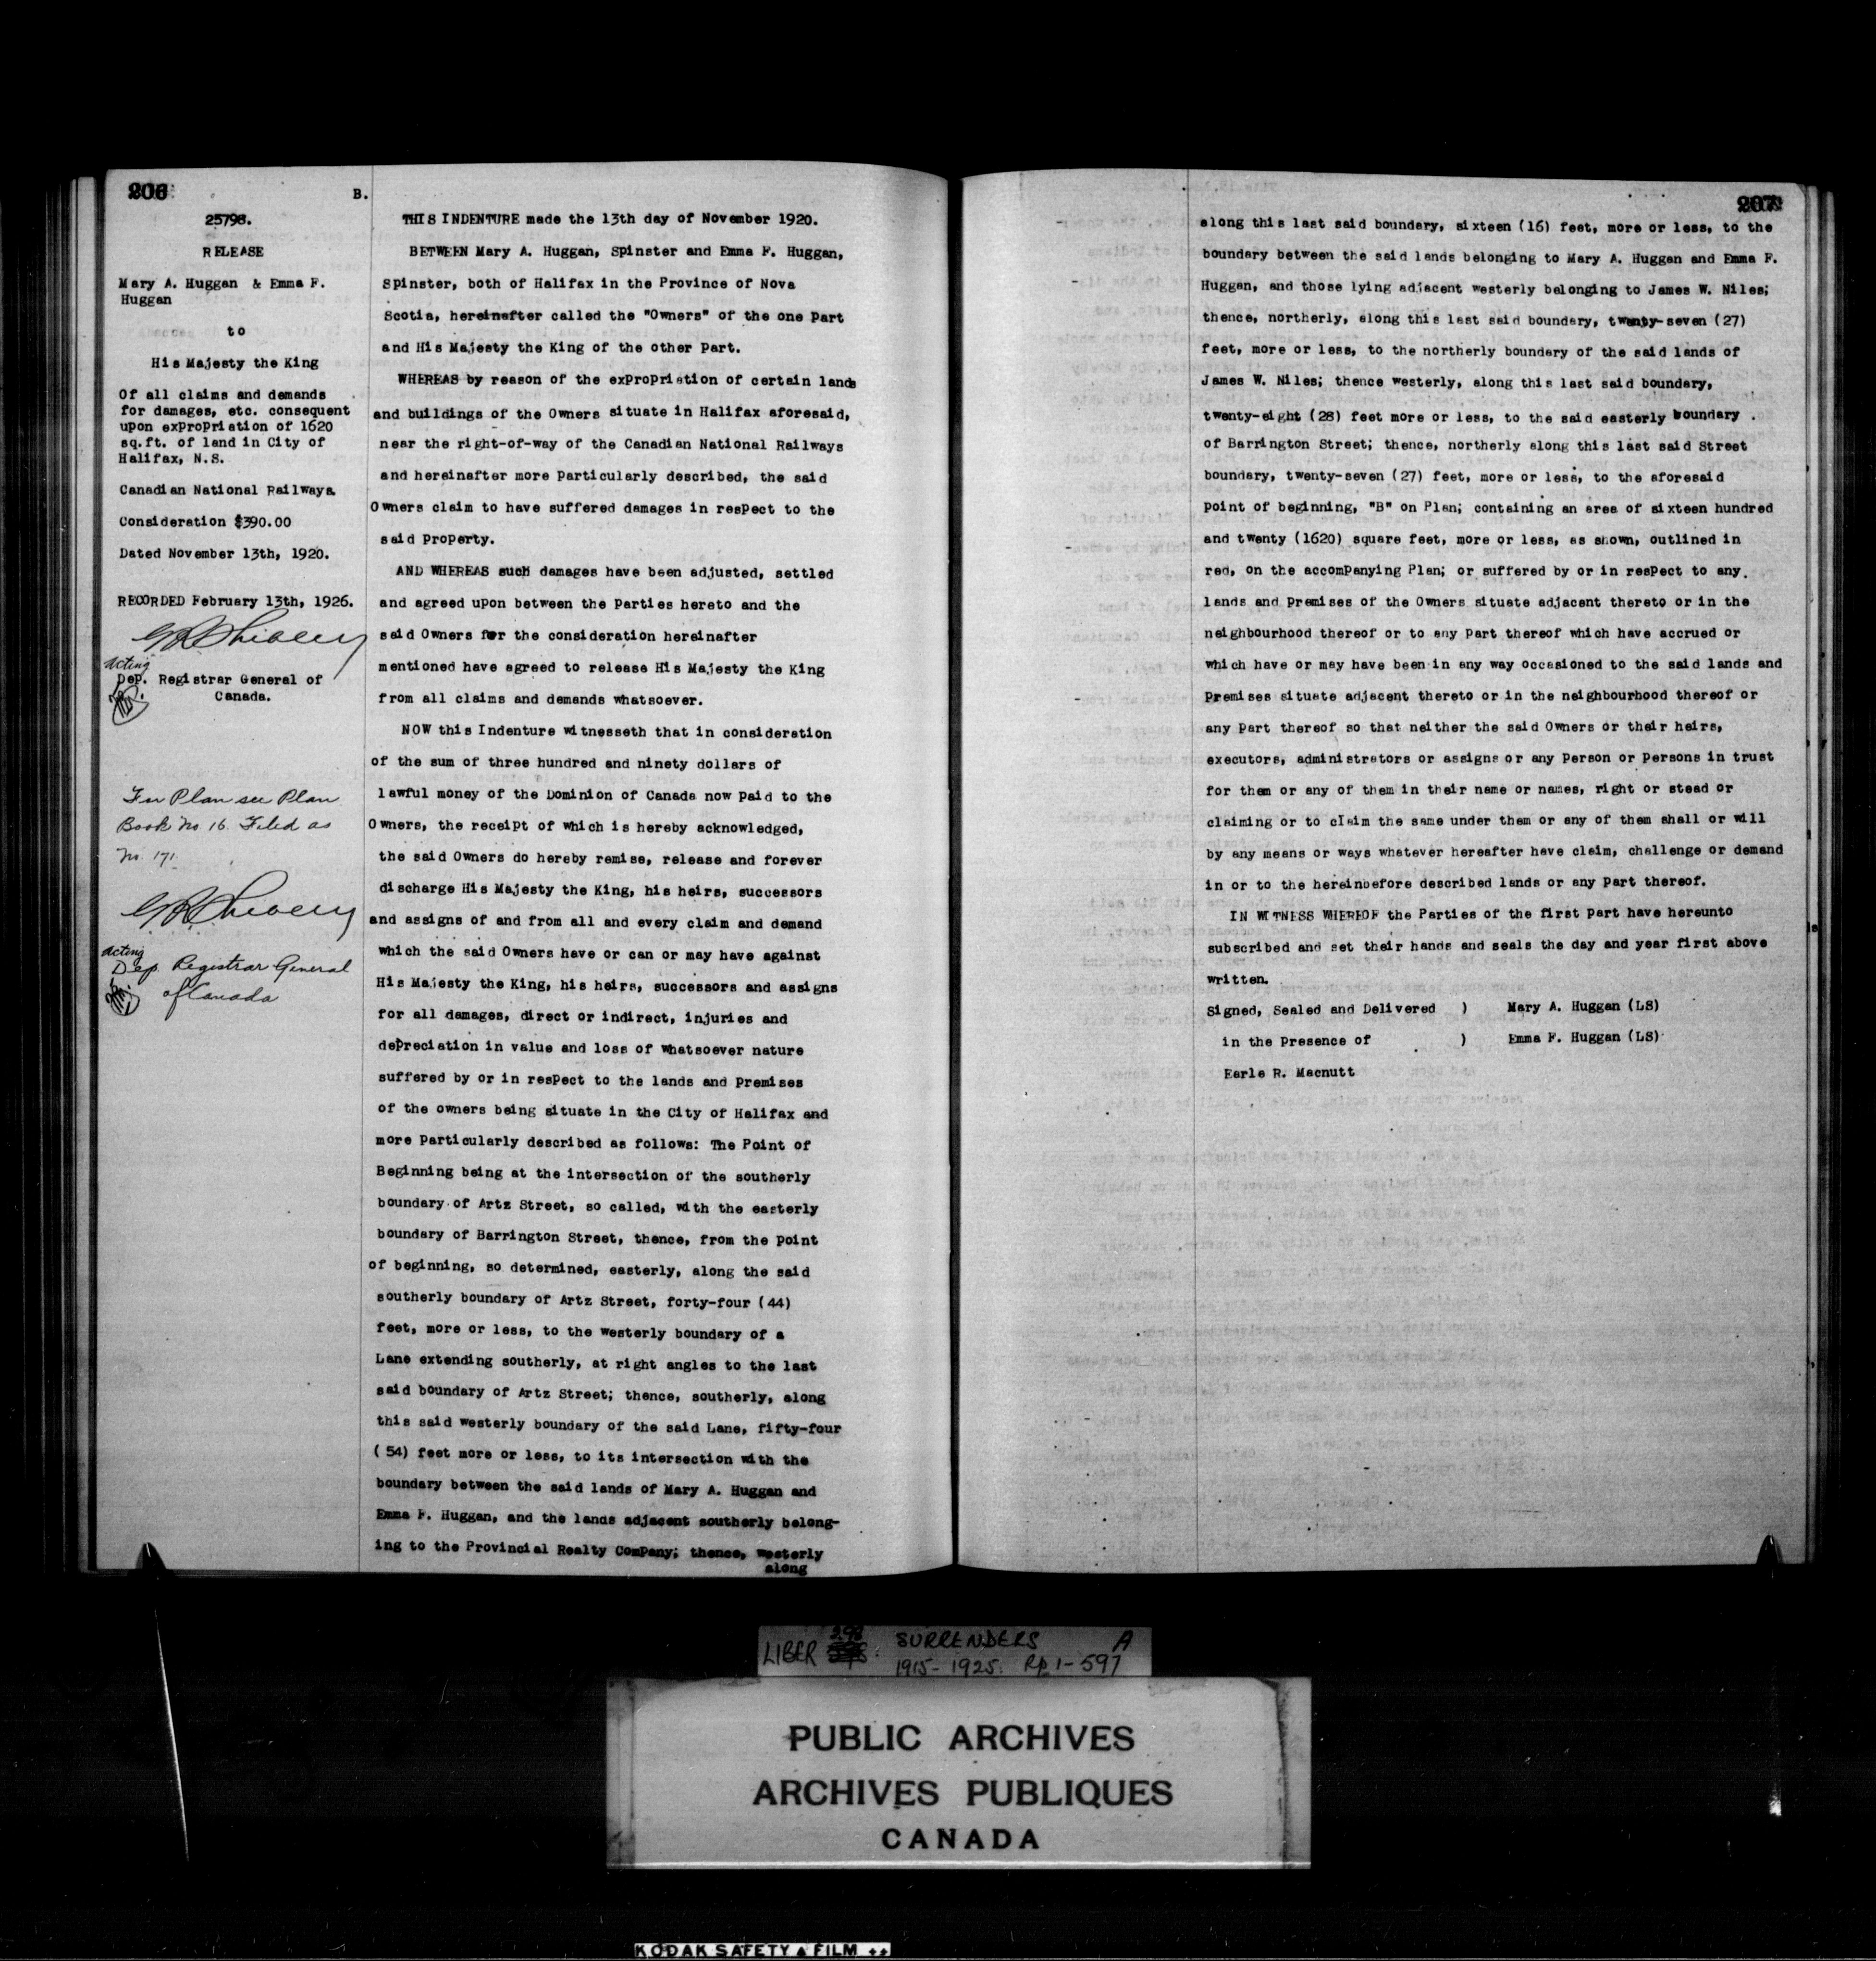 206
B.
25798.
RELEASE
Mary A. Huggan & Emma F.
Huggan
to
His Majesty the King
Of all claims and demands
for damages, etc. consequent
upon expropriation of 1620
sq.ft. of land in City of
Halifax, N.S.
Canadian National Railways
Consideration $390.00
Dated November 13th, 1920.
RECORDED February 13th, 1926.
Acting
Dep. Registrar General of
Canada.
For Plan see Plan
Book No 16. Filed as
No. 171.
Acting
Dep. Registrar General
of Canada
THIS INDENTURE made the 13th day of November 1920.
BETWEEN Mary A. Huggan, Spinster and Emma F. Huggan,
Spinster, both of Halifax in the Province of Nova
Scotia, hereinafter called the "Owners" of the one part
and His Majesty the King of the other Part.
WHEREAS by reason of the expropriation of certain lands
and buildings of the Owners situate in Halifax aforesaid,
near the right-of-way of the Canadian National Railways
and hereinafter more Particularly described, the said
Owners claim to have suffered damages in respect to the
said Property.
AND WHEREAS such damages have been adjusted, settled
and agreed upon between the Parties hereto and the
said Owners for the consideration hereinafter
mentioned have agreed to release His Majesty the King
from all claims and demands whatsoever.
NOW this Indenture witnesseth that in consideration
of the sum of three hundred and ninety dollars of
lawful money of the Dominion of Canada now Paid to the
Owners, the receipt of which is hereby acknowledged,
the said Owners do hereby remise, release and forever
discharge His Majesty the King, his heirs, successors
and assigns of and from all and every claim and demand
which the said Owners have or can or may have against
His Majesty the King, his heirs, successors and assigns
for all damages, direct or indirect, injuries and
depreciation in value and loss of whatsoever nature
suffered by or in respect to the lands and Premises
of the owners being situate in the City of Halifax and
more Particularly described as follows: The Point of
Beginning being at the intersection of the southerly
boundary of Artz Street, so called, with the easterly
boundary of Barrington Street, thence, from the Point
of beginning, so determined, easterly, along the said
southerly boundary of Artz Street, forty-four (44)
feet, more or less, to the westerly boundary of a
Lane extending southerly, at right angles to the last
said boundary of Artz Street; thence, southerly, along
this said westerly boundary of the said Lane, fifty-four
(54) feet more or less, to its intersection with the
boundary between the said lands of Mary A. Huggan and
Emma F. Huggan, and the lands adjacent southerly belong-
ing to the Provincial Realty Company; thence, westerly
along
207
along this last said boundary, sixteen (16) feet, more or less, to the
boundary between the said lands belonging to Mary A. Huggan and Emma F.
Huggan, and those lying adjacent westerly belonging to James W. Niles;
thence, northerly, along this last said boundary, twenty-seven (27)
feet, more or less, to the northerly boundary of the said lands of
James W. Niles; thence westerly, along this last said boundary,
twenty-eight (28) feet more or less, to the said easterly boundary
of Barrington Street; thence, northerly along this last said Street
boundary, twenty-seven (27) feet, more or less, to the aforesaid
Point of beginning, "B" on Plan; containing an area of sixteen hundred
and twenty (1620) square feet, more or less, as shown, outlined in
red, on the accompanying Plan; or suffered by or in respect to any
lands and Premises of the Owners situate adjacent thereto or in the
neighbourhood thereof or to any Part thereof which have accrued or
which have or may have been in any way occasioned to the said lands and
Premises situate adjacent thereto or in the neighbourhood thereof or
any Part thereof so that neither the said Owners or their heirs,
executors, administrators or assigns or any Person or Persons in trust
for them or any of them in their name or names, right or stead or
claiming or to claim the same under them or any of them shall or will
by any means or ways whatever hereafter have claim, challenge or demand
in or to the hereinbefore described lands or any Part thereof.
IN WITNESS WHEREOF the Parties of the first Part have hereunto
subscribed and set their hands and seals the day and year first above
written.
Signed, Sealed and Delivered ) Mary A. Huggan (LS)
in the Presence of ) Emma F. Huggan (LS)
Earle R. Macnutt
LIBER 298: SURRENDERS A
1915-1925. Pp 1-597
PUBLIC ARCHIVES
ARCHIVES PUBLIQUES
CANADA
KODAK SAFETY FILM